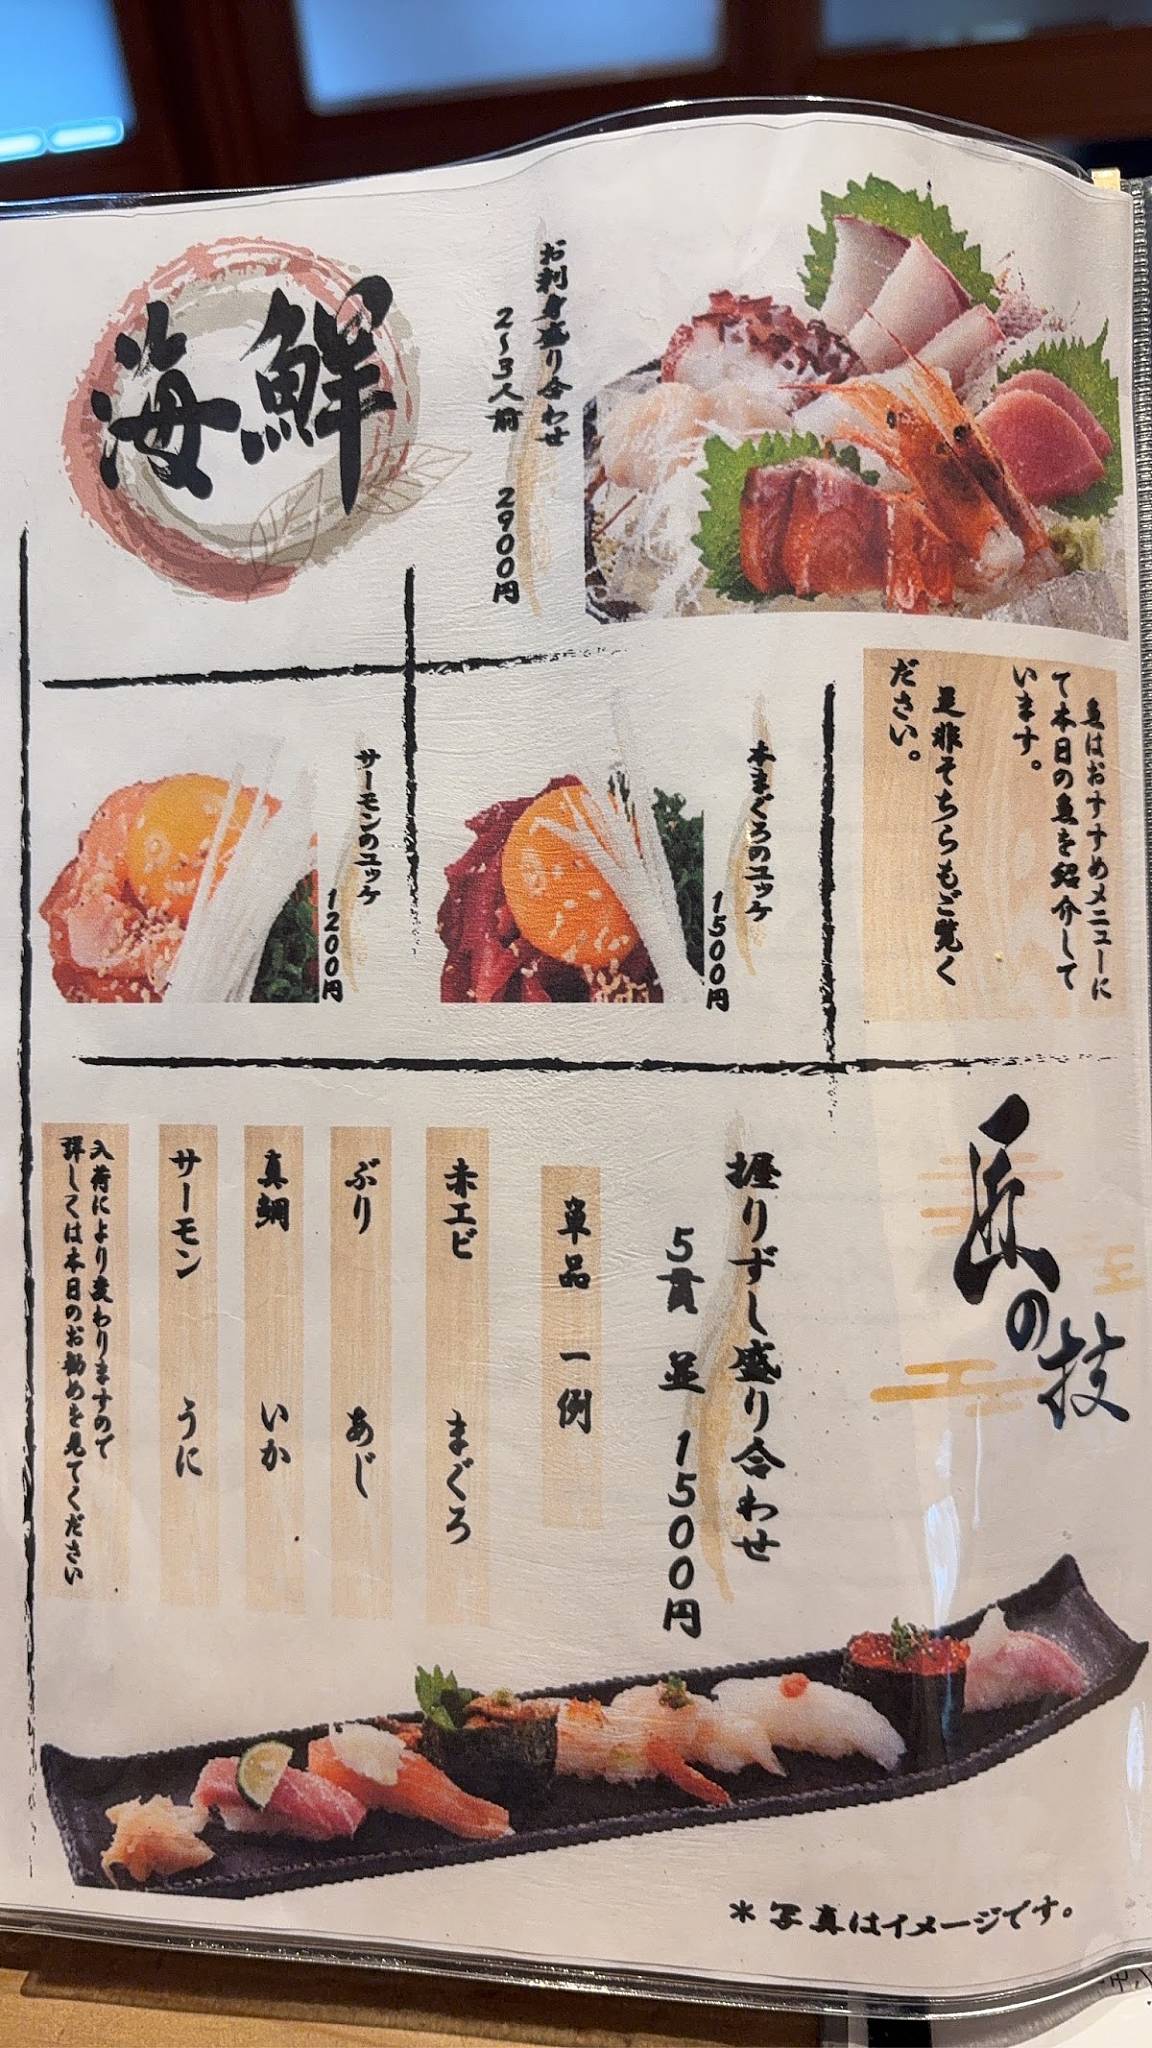 海鮮
お刺身盛り合わせ
2~3人前 2900円
魚はおすすめメニューに
て本日の魚を紹介して
います。
是非そちらもご覧く
ださい。
本まぐろのユッケ
1500円
サーモンのユッケ
1200円
匠の技
握りずし盛り合わせ
5貫 並 1500円
単品 一例
赤エビ まぐろ
ぶり あじ
真鯛 いか
サーモン うに
入荷により変わりますので
詳しくは本日のお勧めを見てください
*写真はイメージです。